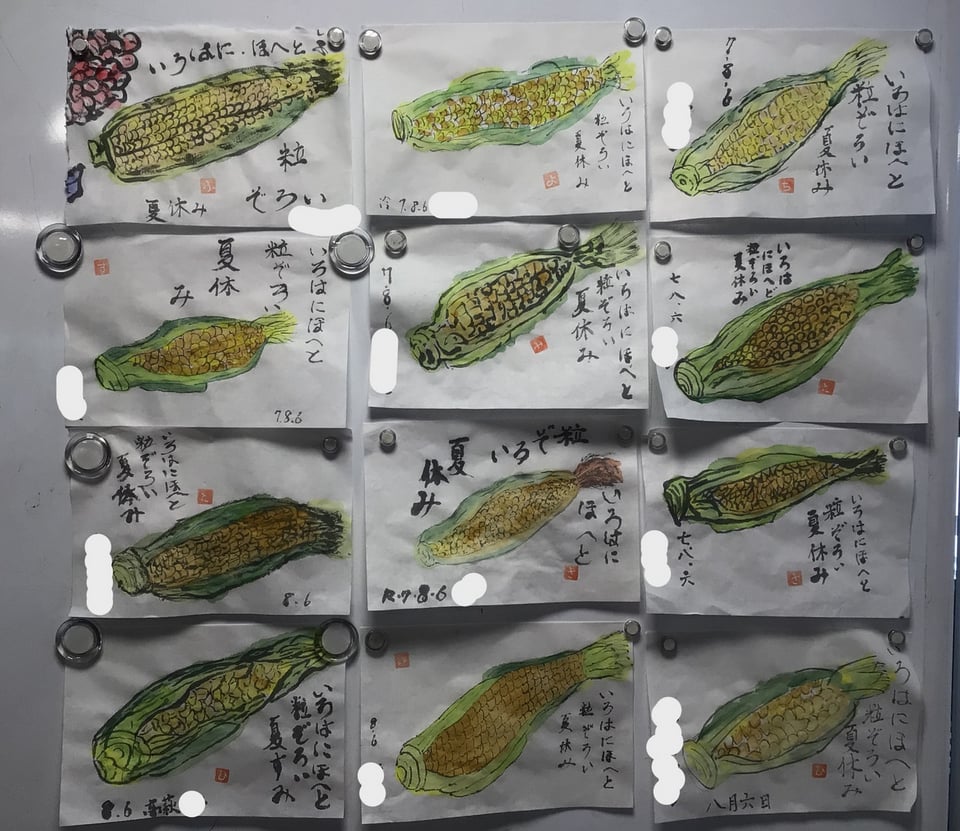 いろはに.ほへと
粒
ぞろい
夏休み
いろはにほへと
粒ぞろい
夏休み
7.8.6
よ
いろはにほへと
粒ぞろい
夏休み
7.8.6
ち
いろはにほへと
粒ぞろい
夏休
み
す
7.8.6
いろはにほへと
粒ぞろい
夏休み
7.8.6
いろは
にほへと
粒ぞろい
夏休み
七八.六
と
いろはにほへと
粒ぞろい
夏休み
8.6
粒
ぞろい
いろはに
ほへと
夏
休み
R.7.8.6
さ
いろはにほへと
粒ぞろい
夏休み
七八.六
いろはにほへと
粒ぞろい
夏すみ
8.6 高萩
ひ
いろはにほへと
粒ぞろい
夏休み
8.6
いろはにほへと
粒ぞろい
夏休み
八月六日
ひ